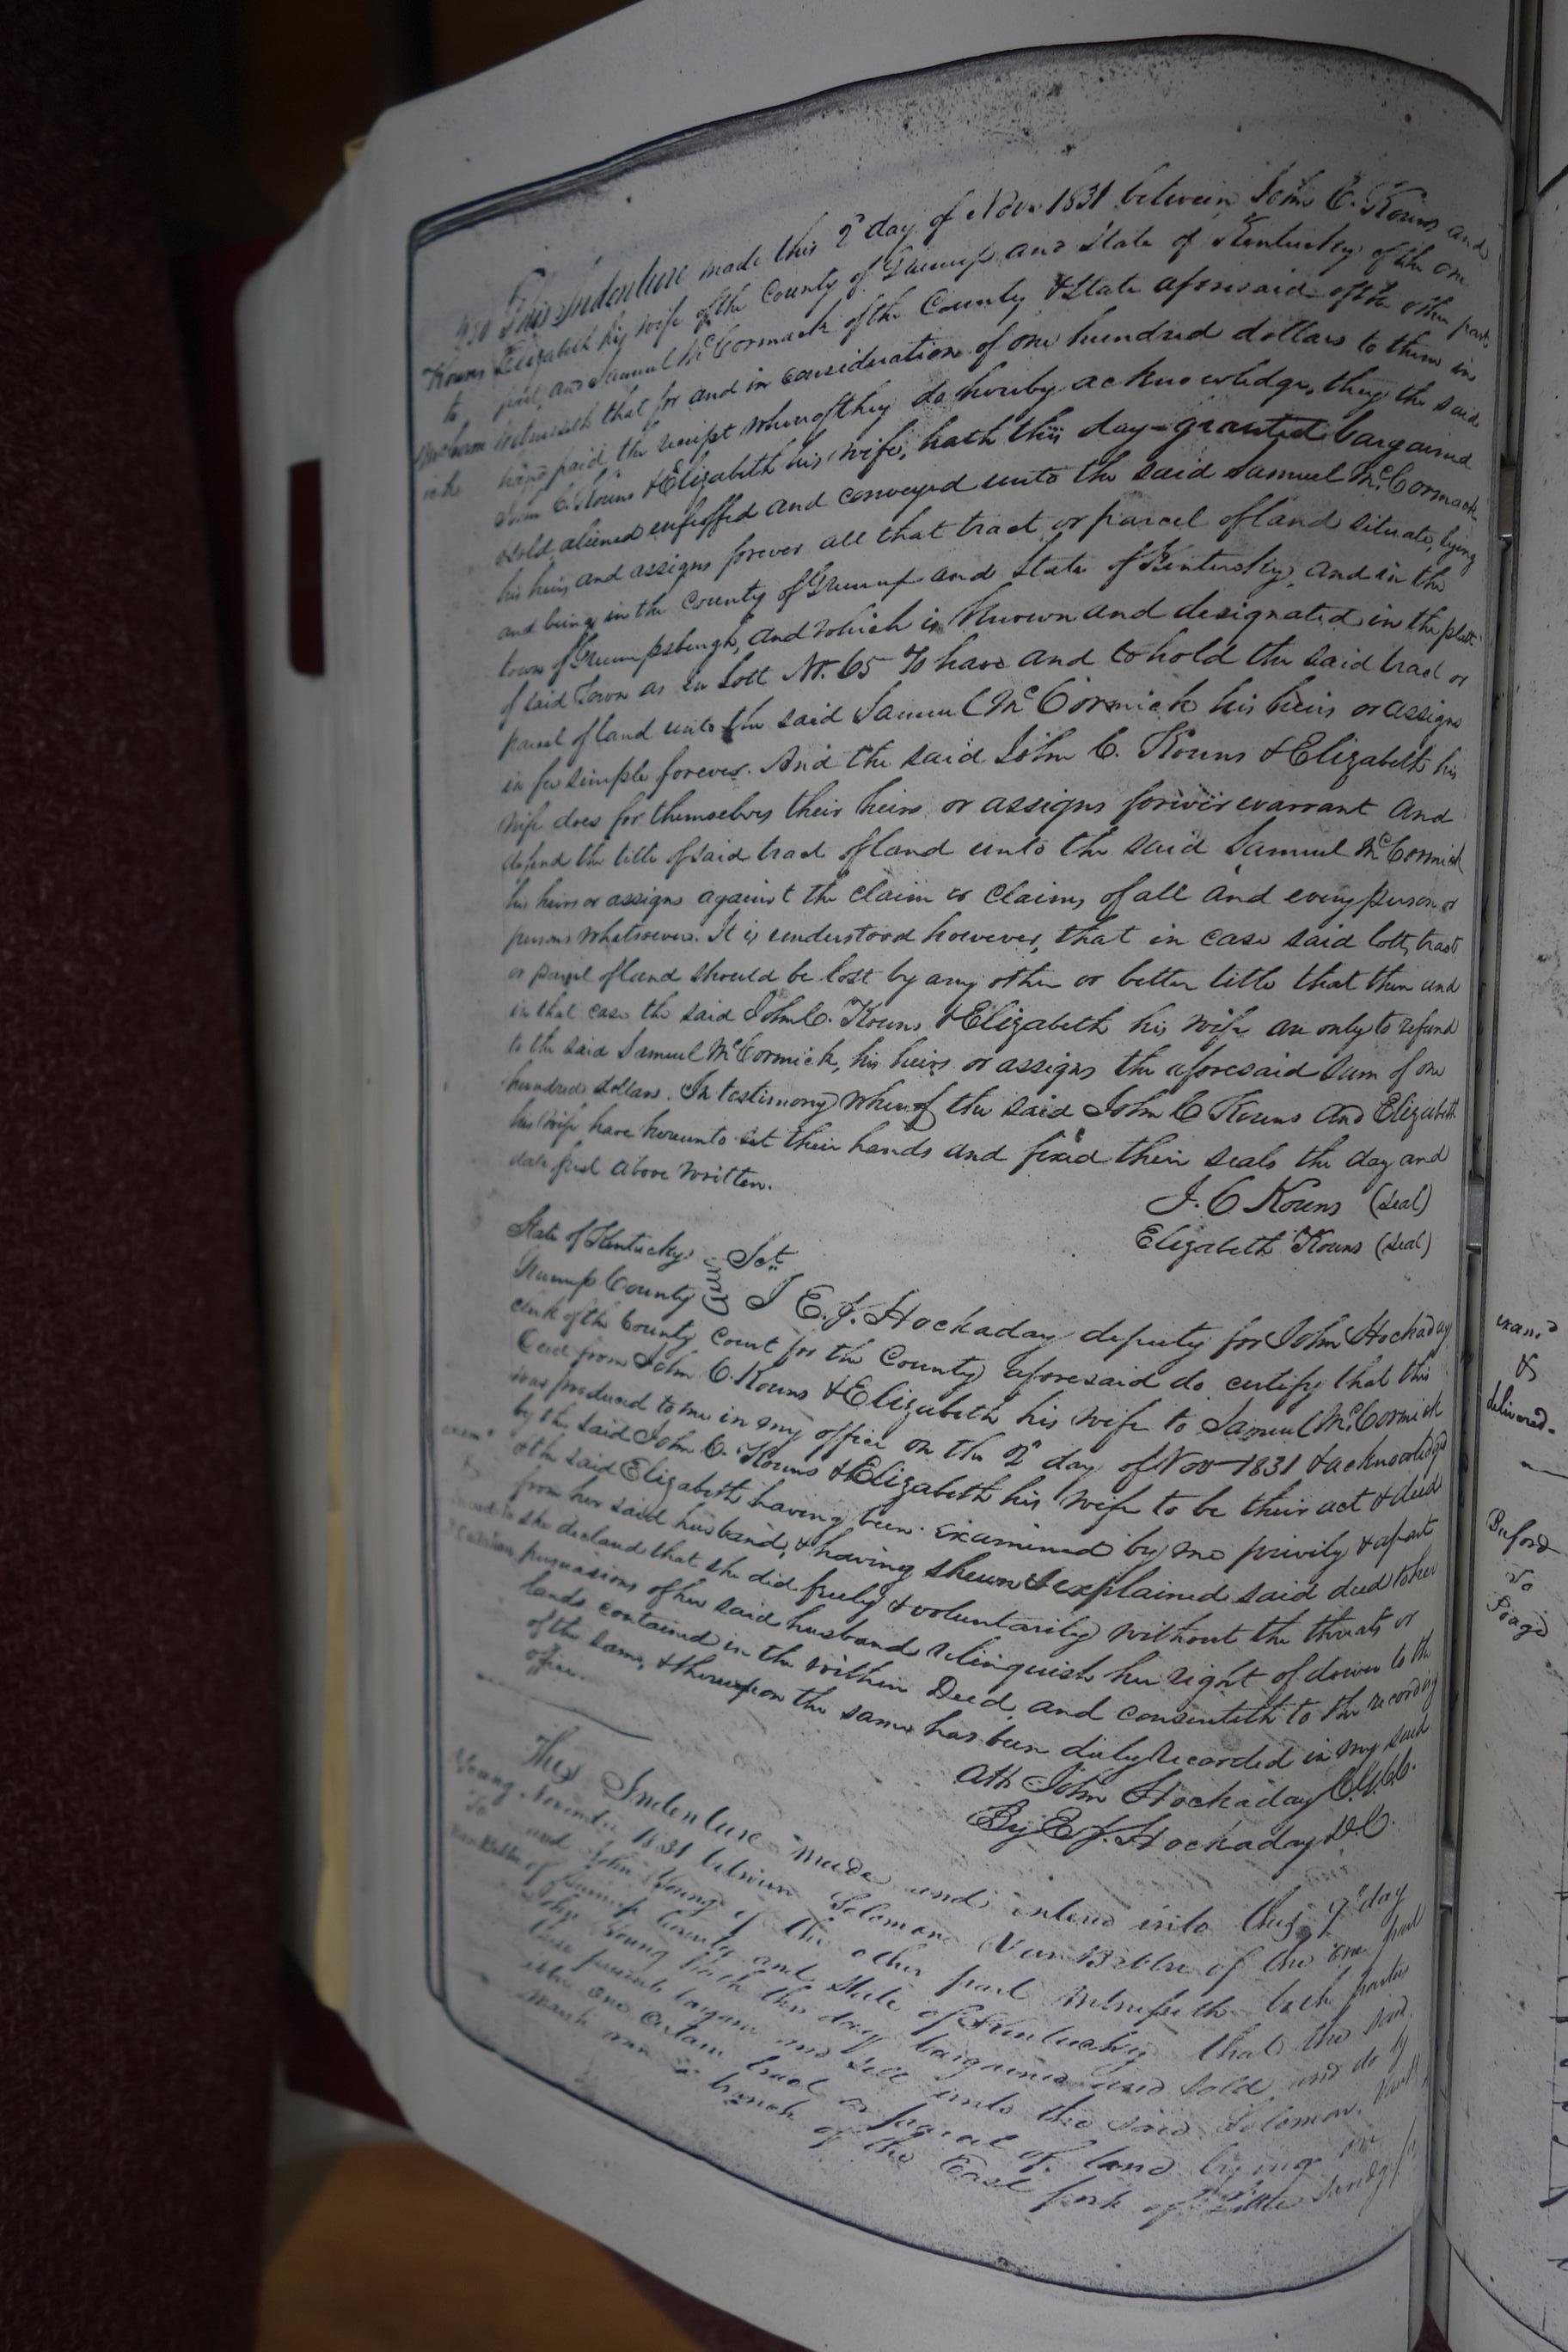 This Indenture made this 2d day of Nov. 1831 between John C. Kouns and
Kouns Elizabeth his wife of the County of Greenup and State of Kentucky of the one
to part, and Samuel McCormack of the County & State aforesaid of the other part
Witnesseth that for and in consideration of one hundred dollars to them in
hand paid the receipt whereof they do hereby acknowledge, they the said
John C. Kouns & Elizabeth his wife, hath this day granted bargained
sold aliened enfeffed and conveyed unto the said Samuel McCormack
his heirs and assigns forever all that tract or parcel of land situate, lying
and being in the County of Greenup and State of Kentucky, and in the
town of Greenupsburgh, and which is known and designated in the platt
of said Town as in Lott No. 65 To have and to hold the said tract or
parcel of land unto the said Samuel McCormick his heirs or assigns
in fee simple forever. And the said John C. Kouns & Elizabeth his
wife does for themselves their heirs or assigns forever warrant and
defend the title of said tract of land unto the said Samuel McCormick
his heirs or assigns against the claim or claims of all and every person or
persons whatsoever. It is understood however, that in case said lott, tract
or parcel of land should be lost by any other or better title that then and
in that case the said John C. Kouns & Elizabeth his wife are only to refund
to the said Samuel McCormick, his heirs or assigns the aforesaid sum of one
hundred dollars. In testimony whereof the said John C Kouns and Elizabeth
his wife have hereunto set their hands and fixed their seals the day and
date first above written.
J. C Kouns (seal)
Elizabeth Kouns (seal)
State of Kentucky Sct.
Greenup County I E. J. Hockaday deputy for John Hockaday
clerk of the County Court for the County aforesaid do certify that this
Deed from John C. Kouns & Elizabeth his wife to Samuel McCormick
was produced to me in my office on the 2d day of Nov 1831 & acknowledged
by the said John C. Kouns & Elizabeth his wife to be their act & deed
& the said Elizabeth having been examined by me privily & apart
from her said husband, & having shewn & explained said deed to her
she declared that she did freely & voluntarily without the threats or
persuasions of her said husband relinquish her right of dower to the
lands contained in the within Deed and consenteth to the recording
of the same, & thereupon the same has been duly recorded in my said
office.
Att John Hockaday C.G.C.C.
By E J. Hockaday D.C.
This Indenture made and entered into this 9th day
Young November 1831 between Solomon VanBibber of the one part
To and John Young of the other part Witnesseth both parties
VanBibber of Greenup County and State of Kentucky that the said
John Young hath this day bargained and sold and do by
these presents bargain and sell unto the said Solomon VanB
one certain tract or parcel of land lying on
Marsh run a branch of the East fork of Little Sandy
exam'd
&
delivered.
Buford
To
Poage